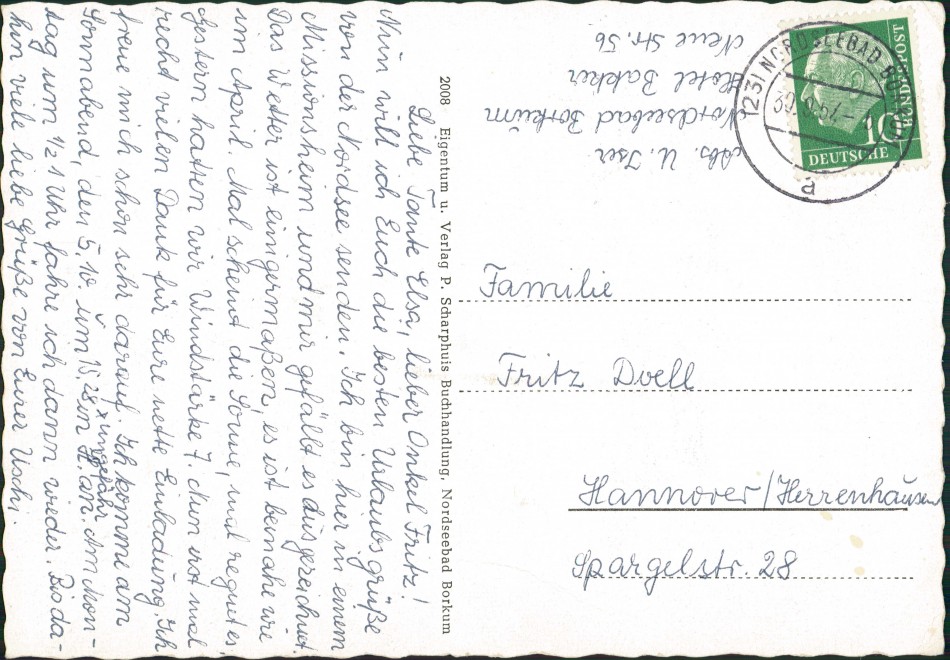 Liebe Tante Elsa, lieber Onkel Fritz!
Nun will ich Euch die besten Urlaubsgrüße
von der Nordsee senden. Ich bin hier in einem
Missionsheim und mir gefällt es ausgezeichnet.
Das Wetter ist einigermaßen, es ist beinahe wie
im April. Mal scheint die Sonne, mal regnet es,
gestern hatten wir Windstärke 7. Nun erst mal
recht vielen Dank für Eure nette Einladung. Ich
freue mich schon sehr darauf. Ich komme am
Sonnabend, den 5.10. um 15.28 x in H. an. Am Mon-
x ungefähr
tag um 1/2 1 Uhr fahre ich dann wieder. Bis da-
hin viele liebe Grüße von Eurer Uschi.
2008 Eigentum u. Verlag P. Scharphuis Buchhandlung, Nordseebad Borkum
Abs. U. Iser
Nordseebad Borkum
Hotel Bakker
Neue Str. 56
(23) NORDSEEBAD BORKUM
a
DEUTSCHE BUNDESPOST
10
Familie
Fritz Doell
Hannover/Herrenhausen
Spargelstr. 28